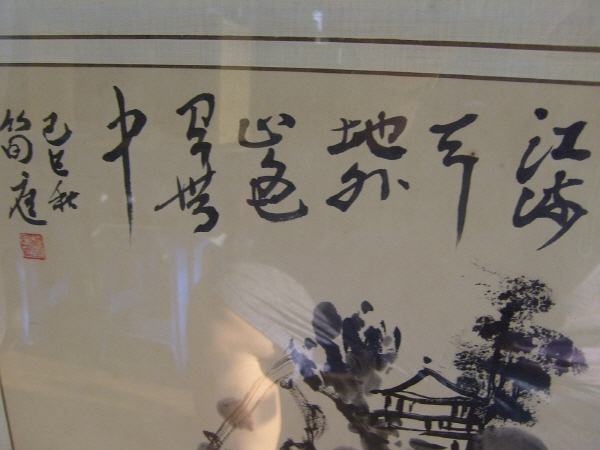 江流
天
地外
山色
有無
中
己巳秋
筍庭